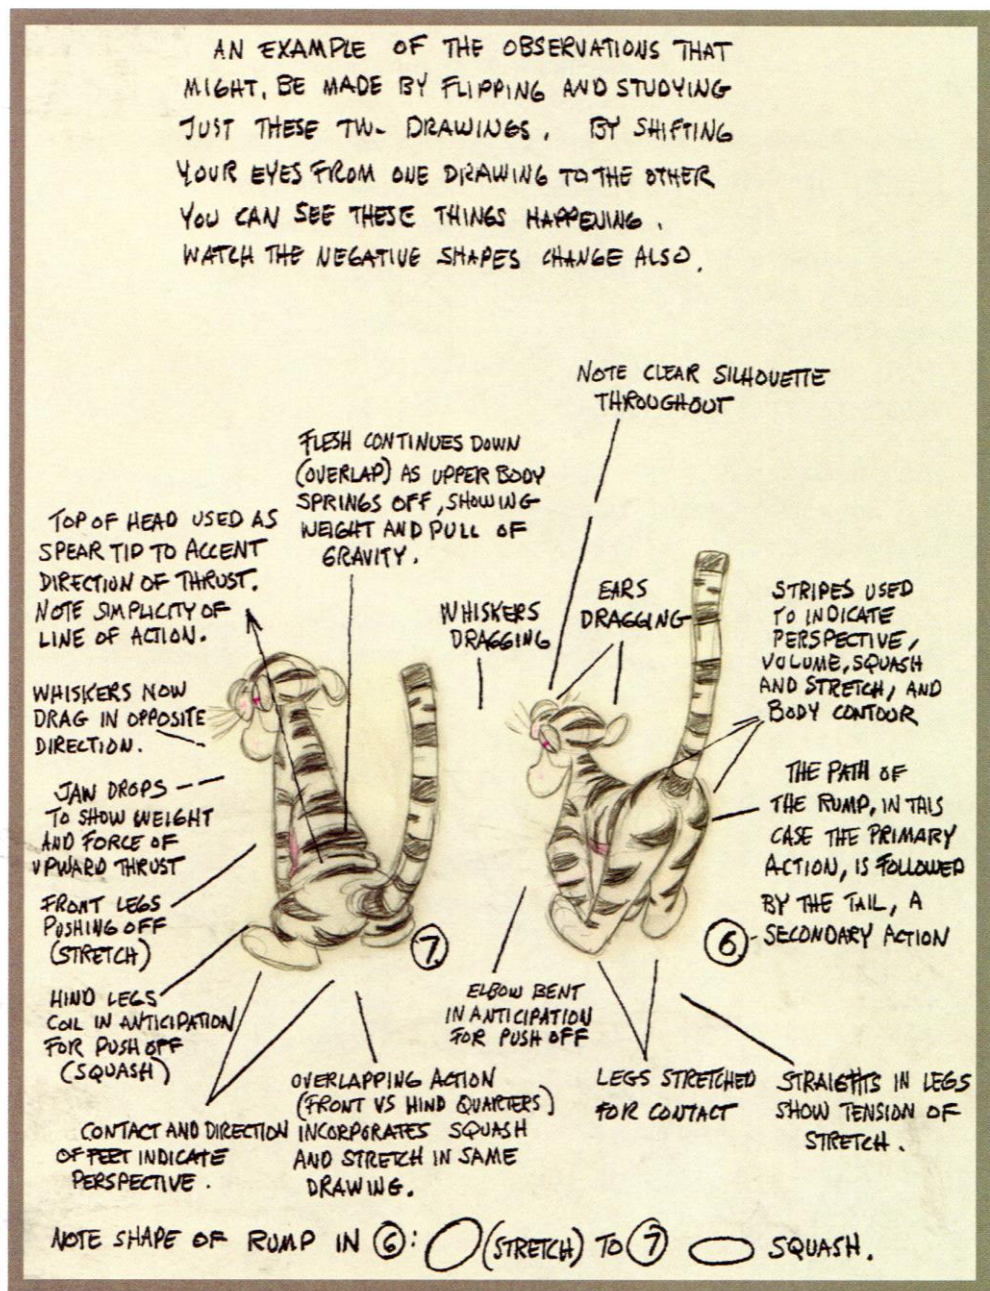 AN EXAMPLE OF THE OBSERVATIONS THAT
MIGHT, BE MADE BY FLIPPING AND STUDYING
JUST THESE TW- DRAWINGS. BY SHIFTING
YOUR EYES FROM ONE DRAWING TO THE OTHER
YOU CAN SEE THESE THINGS HAPPENING.
WATCH THE NEGATIVE SHAPES CHANGE ALSO.
NOTE CLEAR SILHOUETTE
THROUGHOUT
FLESH CONTINUES DOWN
(OVERLAP) AS UPPER BODY
SPRINGS OFF, SHOWING
WEIGHT AND PULL OF
GRAVITY.
TOP OF HEAD USED AS
SPEAR TIP TO ACCENT
DIRECTION OF THRUST.
NOTE SIMPLICITY OF
LINE OF ACTION.
WHISKERS
DRAGGING
EARS
DRAGGING
STRIPES USED
TO INDICATE
PERSPECTIVE,
VOLUME, SQUASH
AND STRETCH, AND
BODY CONTOUR
WHISKERS NOW
DRAG IN OPPOSITE
DIRECTION.
JAW DROPS
TO SHOW WEIGHT
AND FORCE OF
UPWARD THRUST
THE PATH OF
THE RUMP, IN THIS
CASE THE PRIMARY
ACTION, IS FOLLOWED
BY THE TAIL, A
SECONDARY ACTION
FRONT LEGS
PUSHING OFF
(STRETCH)
7
6
HIND LEGS
COIL IN ANTICIPATION
FOR PUSH OFF
(SQUASH)
ELBOW BENT
IN ANTICIPATION
FOR PUSH OFF
CONTACT AND DIRECTION
OF FEET INDICATE
PERSPECTIVE.
OVERLAPPING ACTION
(FRONT VS HIND QUARTERS)
INCORPORATES SQUASH
AND STRETCH IN SAME
DRAWING.
LEGS STRETCHED
FOR CONTACT
STRAIGHTS IN LEGS
SHOW TENSION OF
STRETCH.
NOTE SHAPE OF RUMP IN 6: (STRETCH) TO 7 SQUASH.